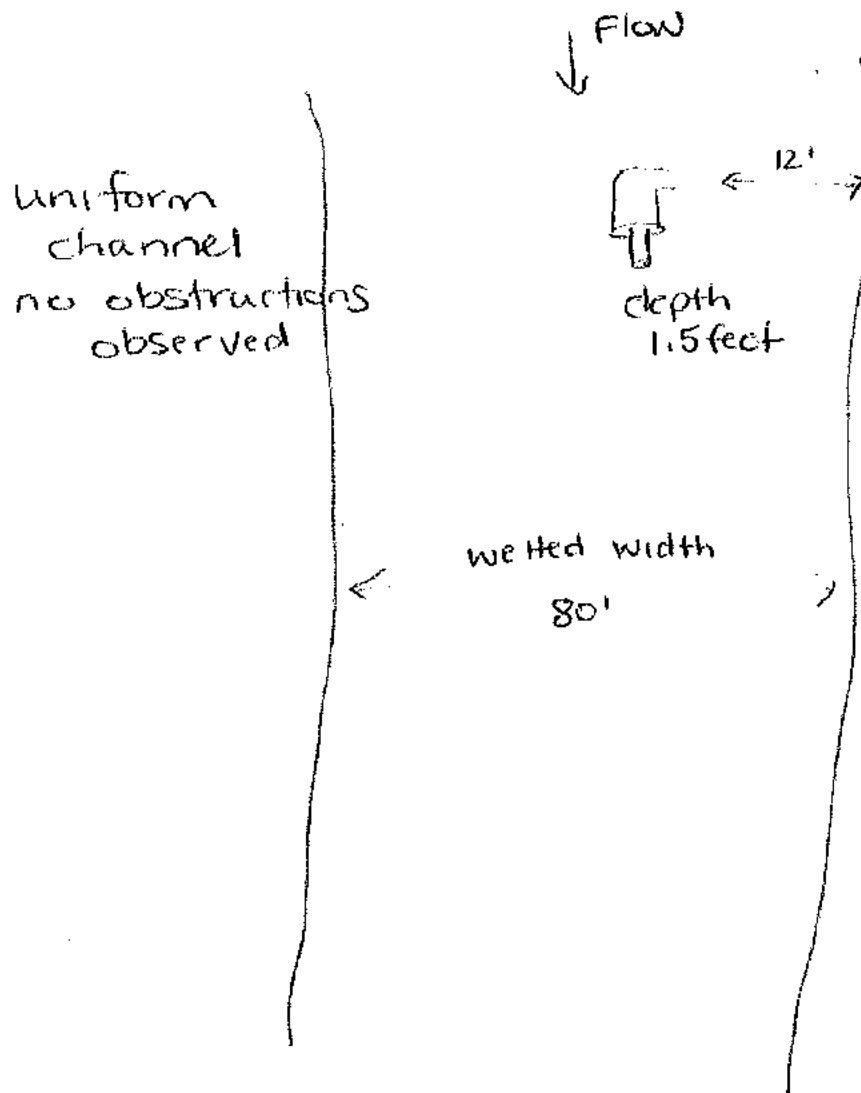 Flow
12'
uniform
channel
no obstructions
observed
depth
1.5 feet
wetted width
80'